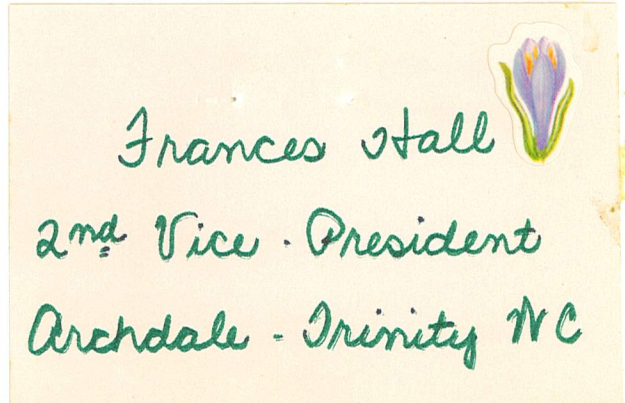 Frances Hall
2nd Vice - President
Archdale - Trinity NC